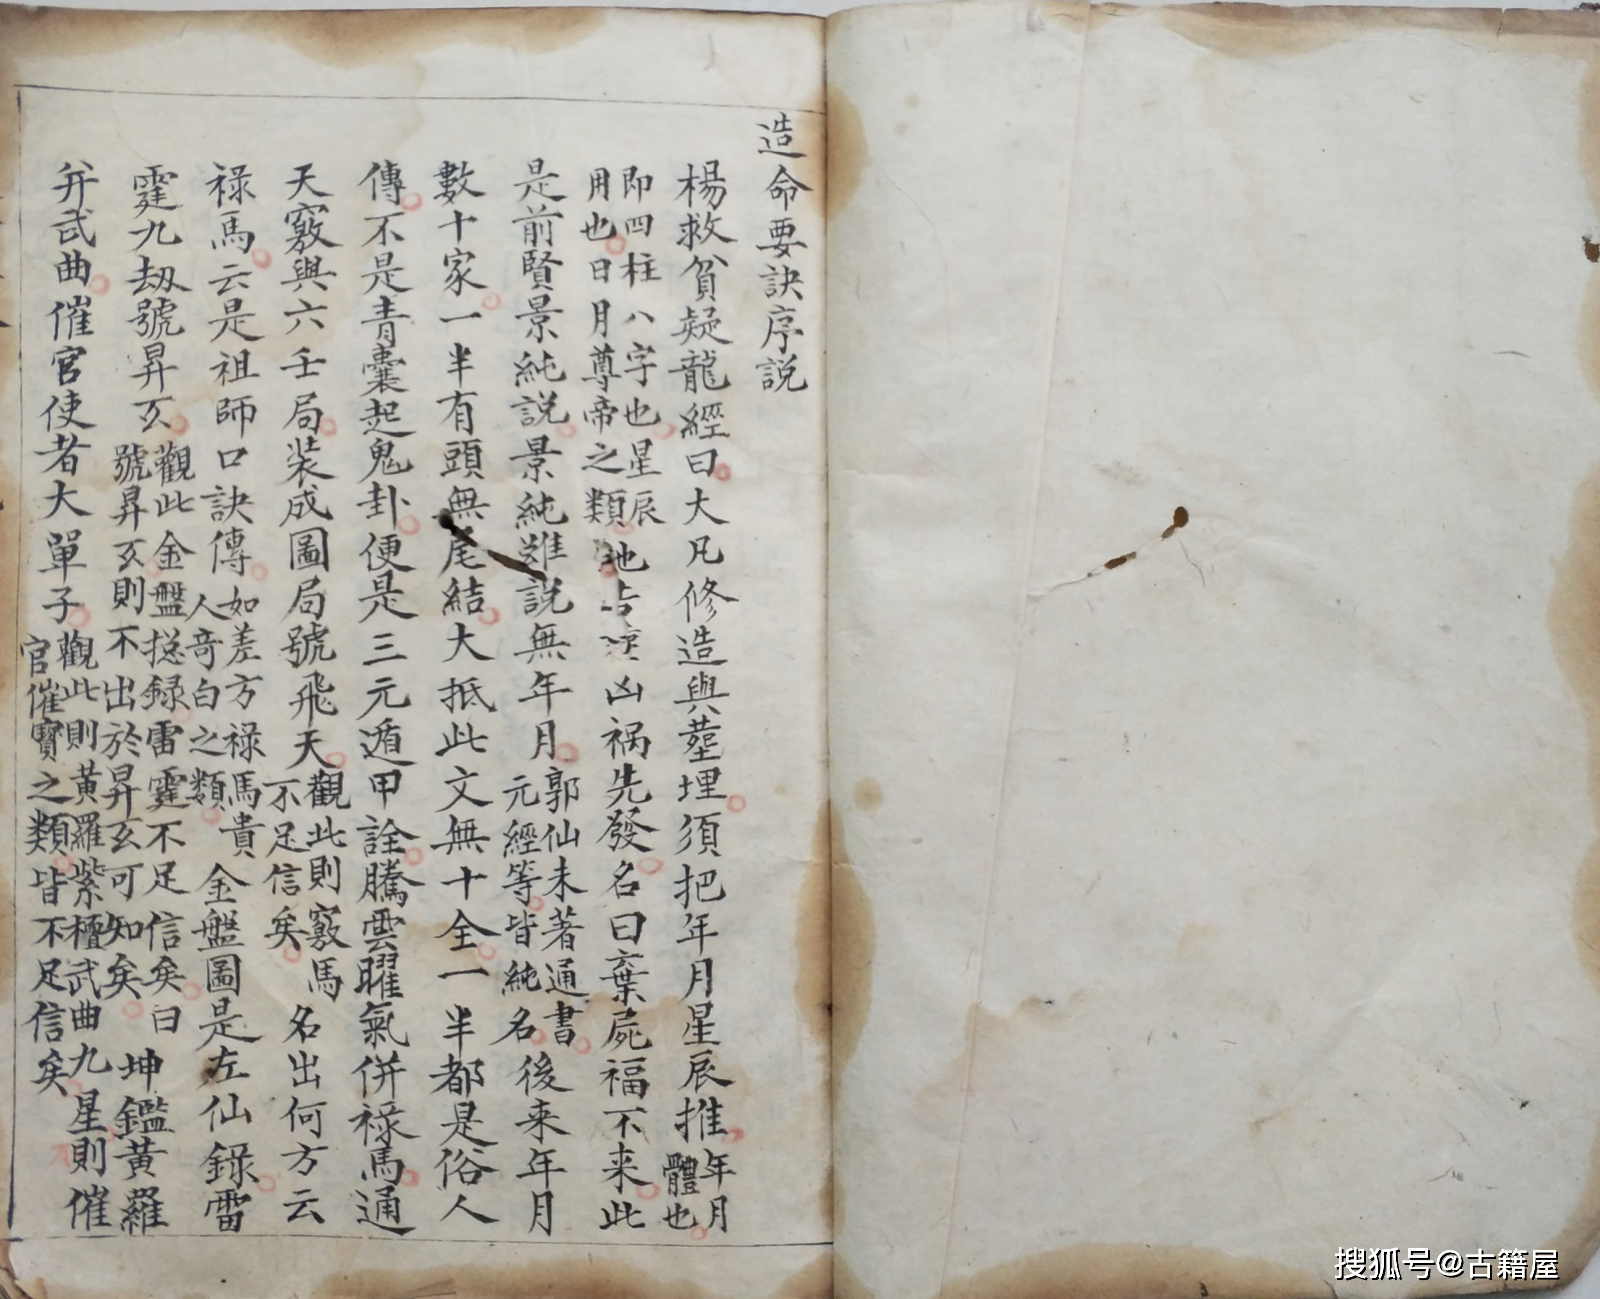 造命要訣序說
楊救貧疑龍經曰大凡修造與塟埋須把年月星辰推年月體也
即四柱八字也星辰用也日月尊帝之類地吉凶祸先發名曰棄屍福不来此
是前賢景純說景純雖說無年月郭仙未著通書元經等皆純名後来年月
數十家一半有頭無尾結大抵此文無十全一半都是俗人
傳不是青囊起鬼卦便是三元遁甲詮騰雲曜氣併禄馬通
天竅與六壬局装成圖局號飛天觀此則竅馬不足信矣名出何方云
禄馬云是祖師口訣傳如差方禄馬貴人奇白之類金盤圖是左仙録雷
霆九刼號昇玄觀此金盤捴録雷霆不足信矣曰號昇玄則不出於昇玄可知矣坤鑑黃羅
并武曲催官使者大單子觀此則黃羅紫檀武曲九星則催官催寶之類皆不足信矣
搜狐号@古籍屋